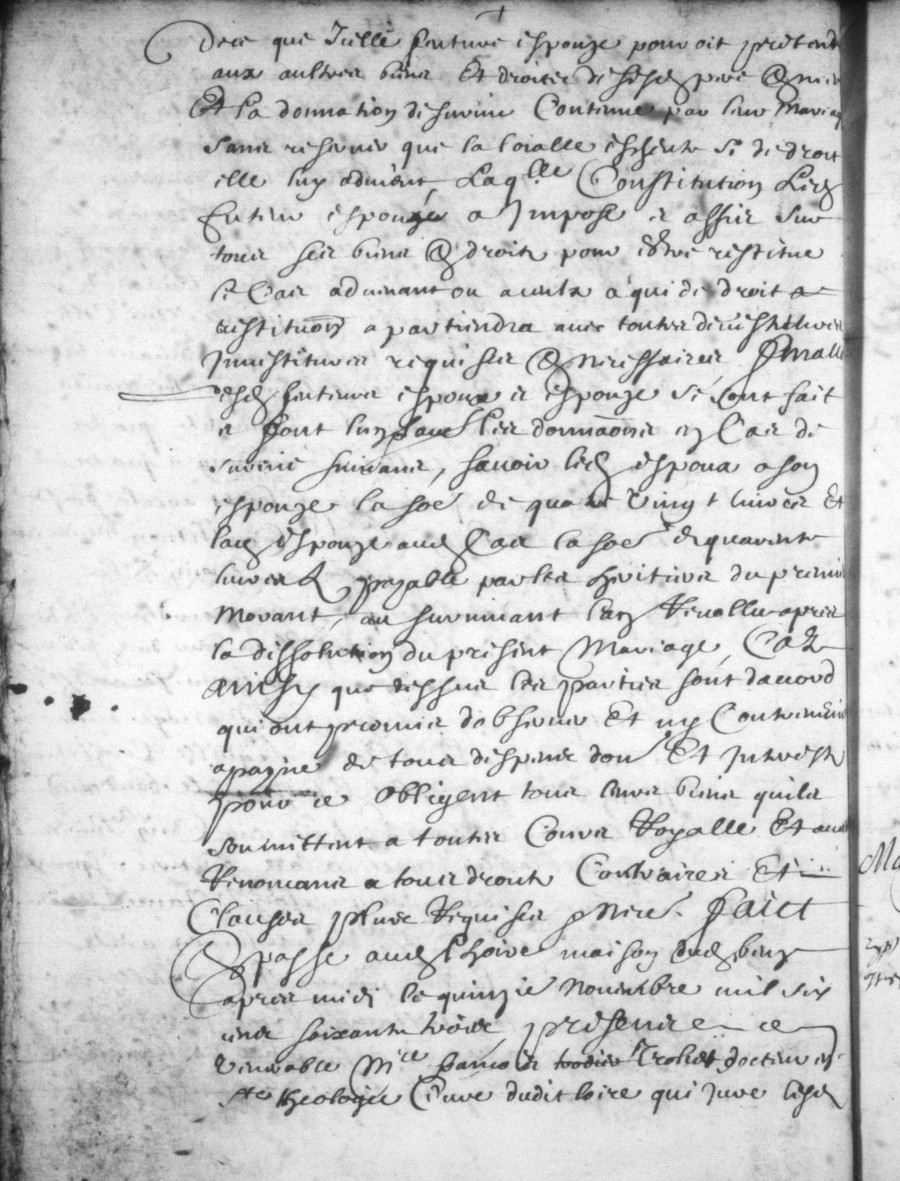 De ce que Icelle future espouze pouvoit pretendre
aux aultres biens Et droictz de sesd pere & mere
Et la donnation de survie Contenue par leur Mariage
sans reserver que la loialle escheute si de droit
elle luy advient, Laqlle Constitution Led
futur espoux a Impose et assis sur
tous ses biens & droitz pour estre restitue
le Cas advenant ou a ceulx a qui de droit
restituon apartiendra avec toutes devestitures
Investitures requises & necessaires, finalle
lesd futeurs espoux et espouze se sont fait
et font les donnaons en Cas de
survie suivans, savoir led espoux a son
espouze la soe de quatre vingt livres Et
lad espouze aud Cas la soe de quarente
livres payable par les heritiers du premier
Morant, au survivant led Revollu apres
la dissolution du present Mariage, Car
ainsy que dessus les parties sont daccord
qui ont promis dobserver Et ny Contrevenir
a payne de tous despens dom Et Interestz
pour ce Obligent tous leurs biens quilz
soumittent a toutes Cours Royalle Et
Renoncans a tous droitz Contraires Et
Clauses plus Requises Faict
& passe aud maison dud
apres midi le quinzie Novembre mil six
cens soixante trois presens ce
Venerable Mre francois docteur en
ste theologie Cure dudit loire qui jure lesd